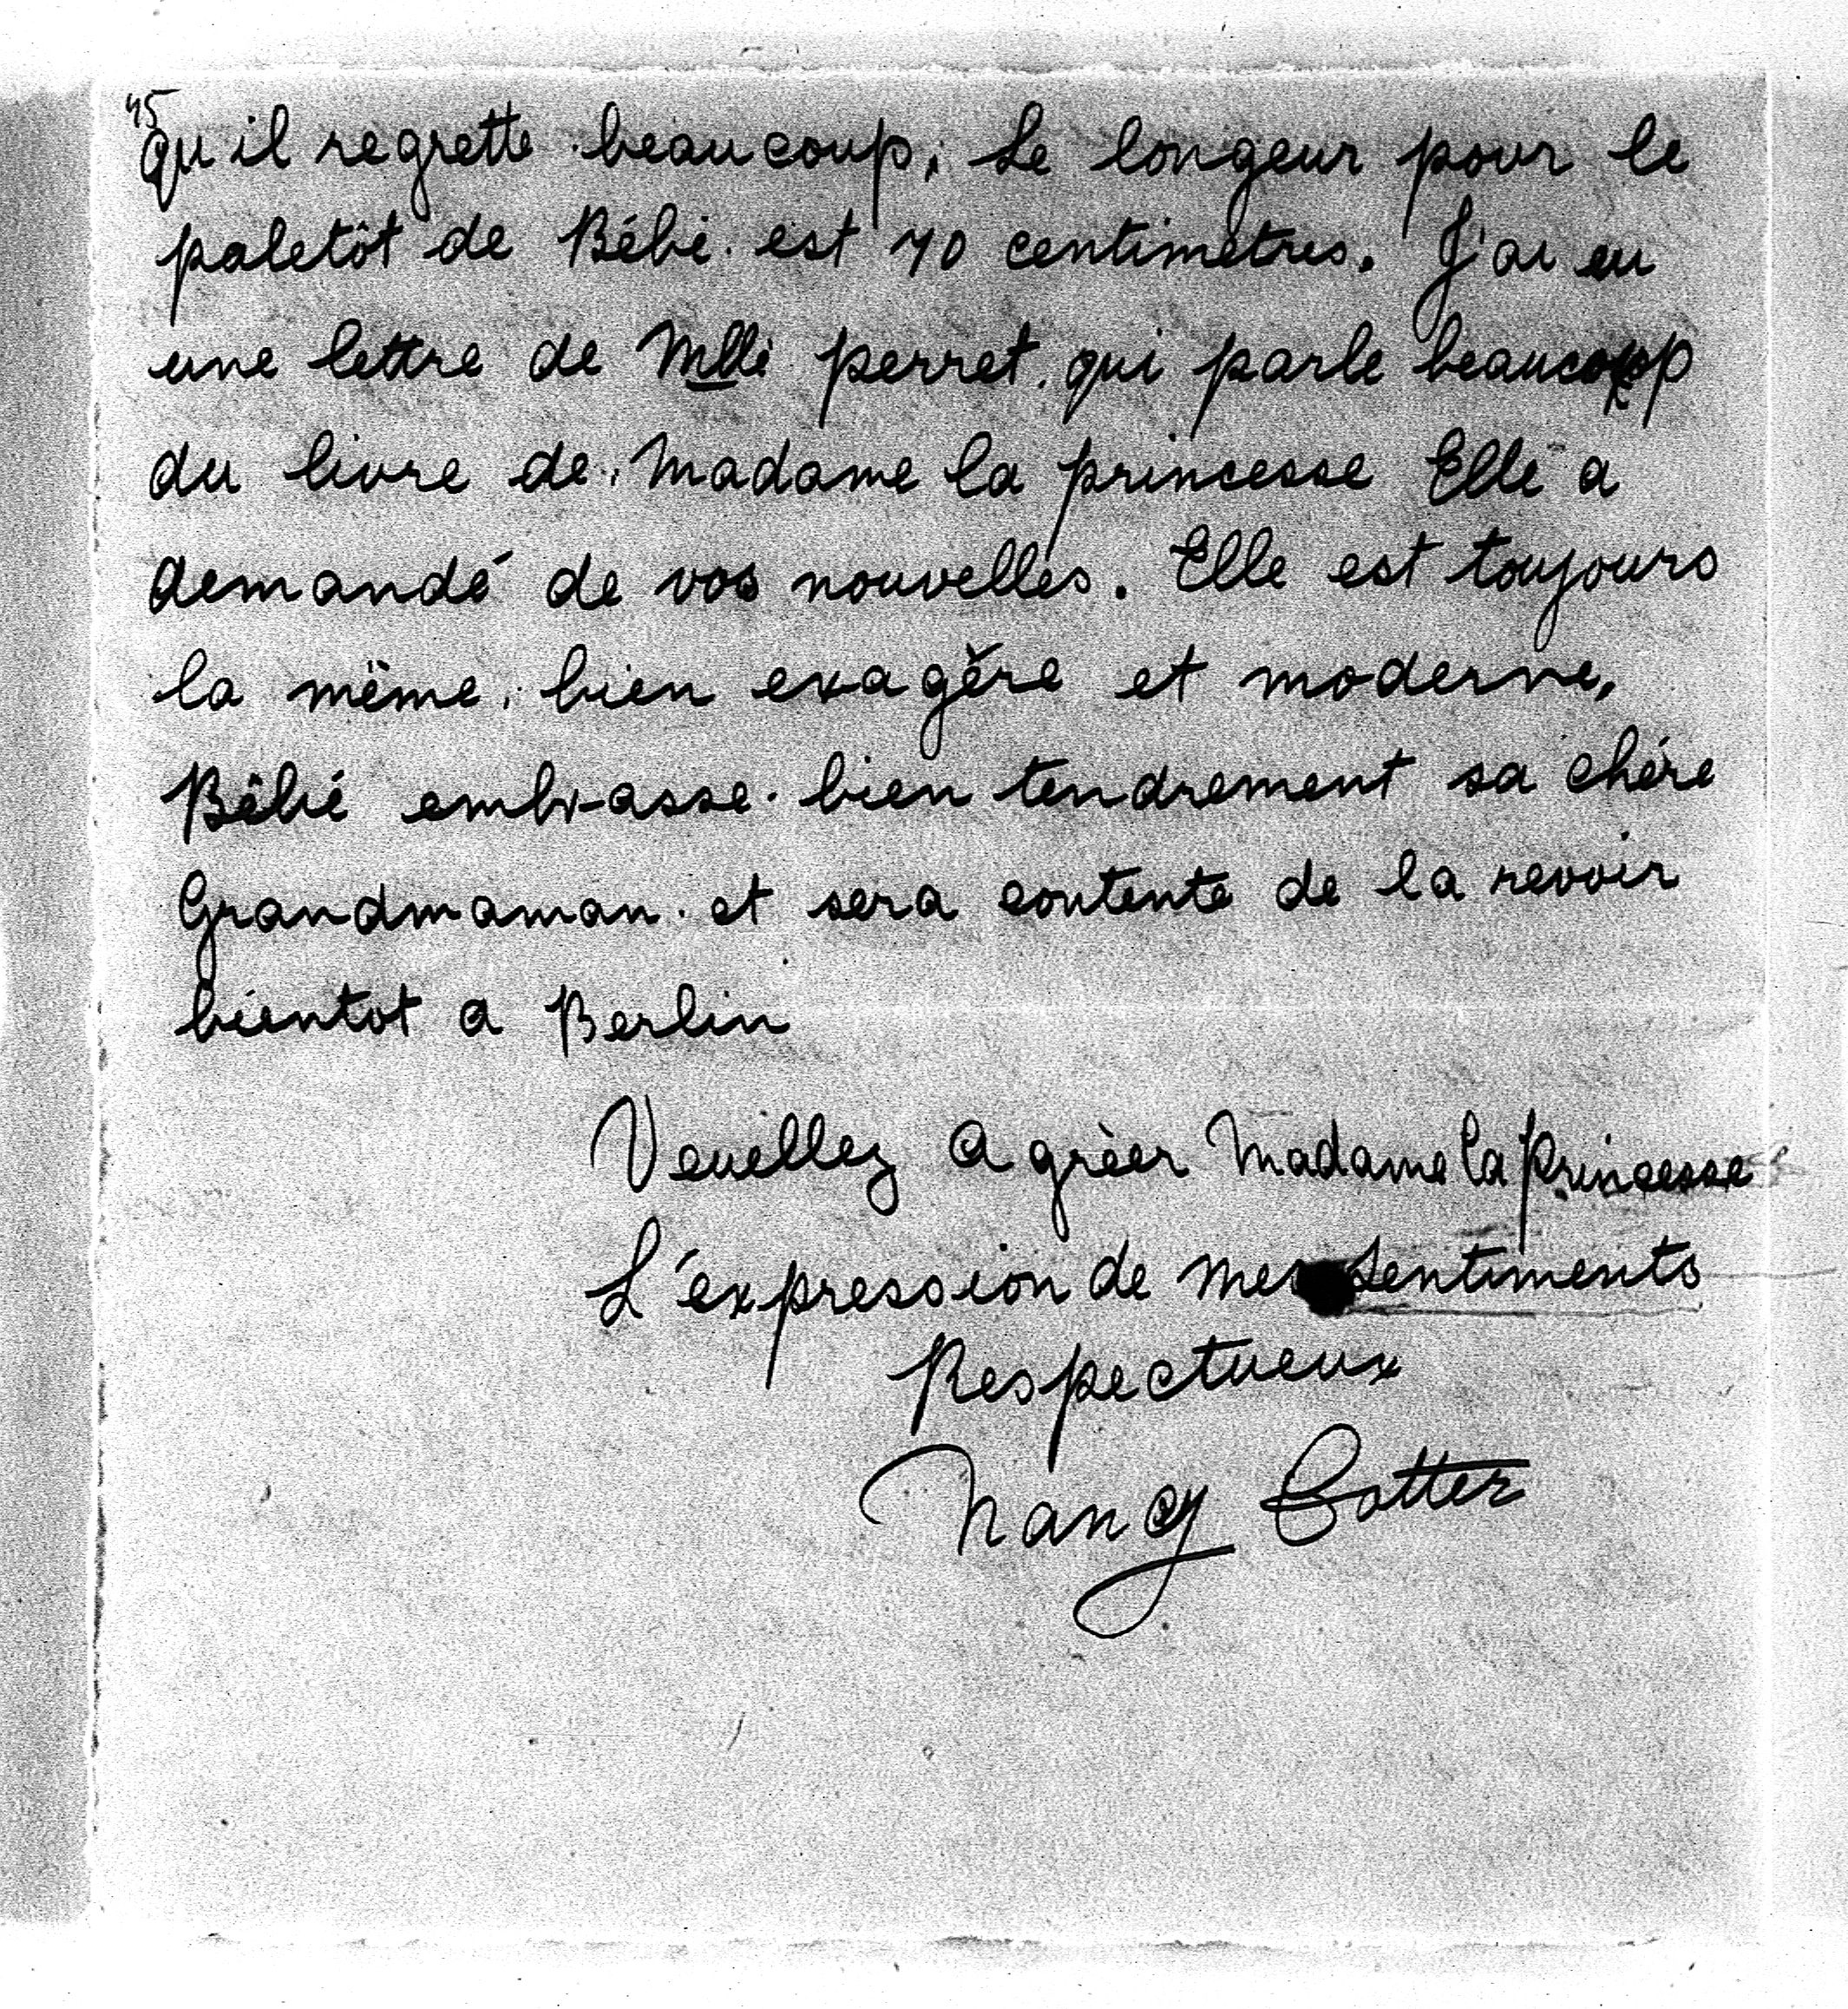 45
qu'il regrette beaucoup. Le longeur pour le
paletôt de Bébé est 70 centimètres. J'ai eu
une lettre de Mlle perret qui parle beaucoup
du livre de Madame la princesse Elle a
demandé de vos nouvelles. Elle est toujours
la même, bien exagère et moderne,
Bébé embrasse bien tendrement sa chére
Grandmaman et sera contente de la revoir
bientot a Berlin
Veuellez Agrèer Madame la Princesse
L'expression de mes Sentiments
Respectueux
Nancy Cotter